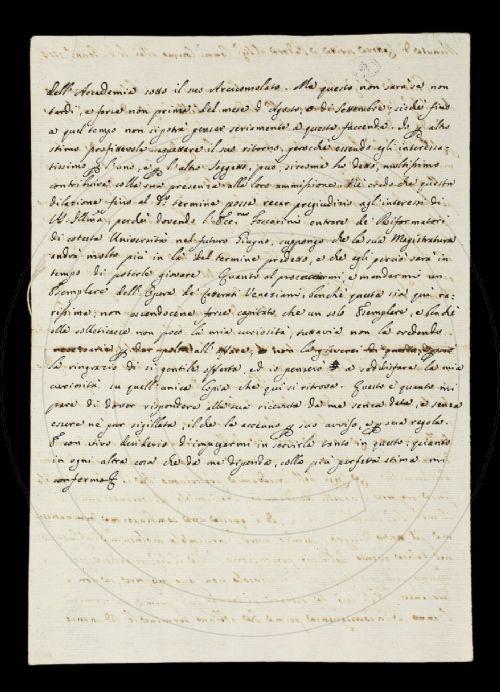 dell'Accademia sotto il suo Arciconsolato. Ma questo non sarà se non
tardi, e forse non prima del mese d'Agosto, o di Settembre; sicche fino
a quel tempo non si potrà pensar seriamente a questa faccenda. Io altro
stimo profittevole aspettare il suo ritorno, perochè essendo egli interessa-
tissimo l'uno, e l'altro Soggetto, può, siccome ho detto, moltissimo
contribuire colla sua presenza alla loro ammissione. Nè credo che questa
dilazione fino al d.º termine possa recar pregiudizio agl'interessi di
perchè dovendo l'Ecc.mo Foscarini entrare de' Riformatori
di cotesta Università nel futuro Giugno, suppongo che la sua Magistratura
andrà molto più in là del termine predetto, e che egli perciò sarà in
tempo di poterle giovare. Quanto al procacciarmi, e mandarmi un
Esemplare dell'Opera de' Veneziani, benchè questa sia qui ra-
rissima, non essendocene forse capitato che un solo Esemplare, e benchè
ella solleticasse non poco la mia curiosità, tuttavia non la credendo
necessaria
la ringrazio di sì gentile offerta, ed io penserò a soddisfare la mia
curiosità su quell'unica Copia che qui si ritrova. Questo è quanto mi
pare di dover rispondere alla sua ricevuta da me senza data, e senza
essere nè pur sigillata, il che le accenno suo avviso, e sua regola.
E con vivo desiderio d'impiegarmi in servirla tanto in questo, quanto
in ogni altra cosa che da me dipenda, colla più perfetta stima mi
confermo